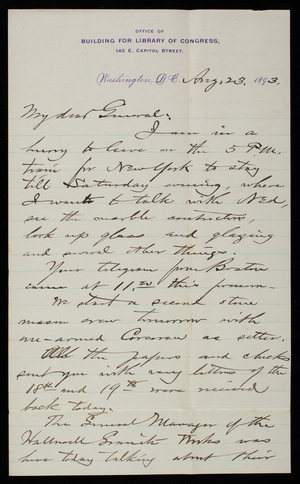 OFFICE OF
BUILDING FOR LIBRARY OF CONGRESS,
145 E. CAPITOL STREET.
Washington, D.C. Aug. 23, 1893.
My dear General:
I am in a
hurry to leave on the 5 P.M.
train for New York to stay
till Saturday evening, where
I want to talk with Ned,
see the marble contractors,
look up glass and glazing
and several other things.
Your telegram from Boston
came at 11.20 this forenoon.
We start a second stone
mason crew tomorrow with
one-armed Corcoran as setter.
All the papers and checks
sent you with my letters of the
18th and 19th were received
back today.
The General Manager of the
Hallowell Granite Works was
here today talking about their